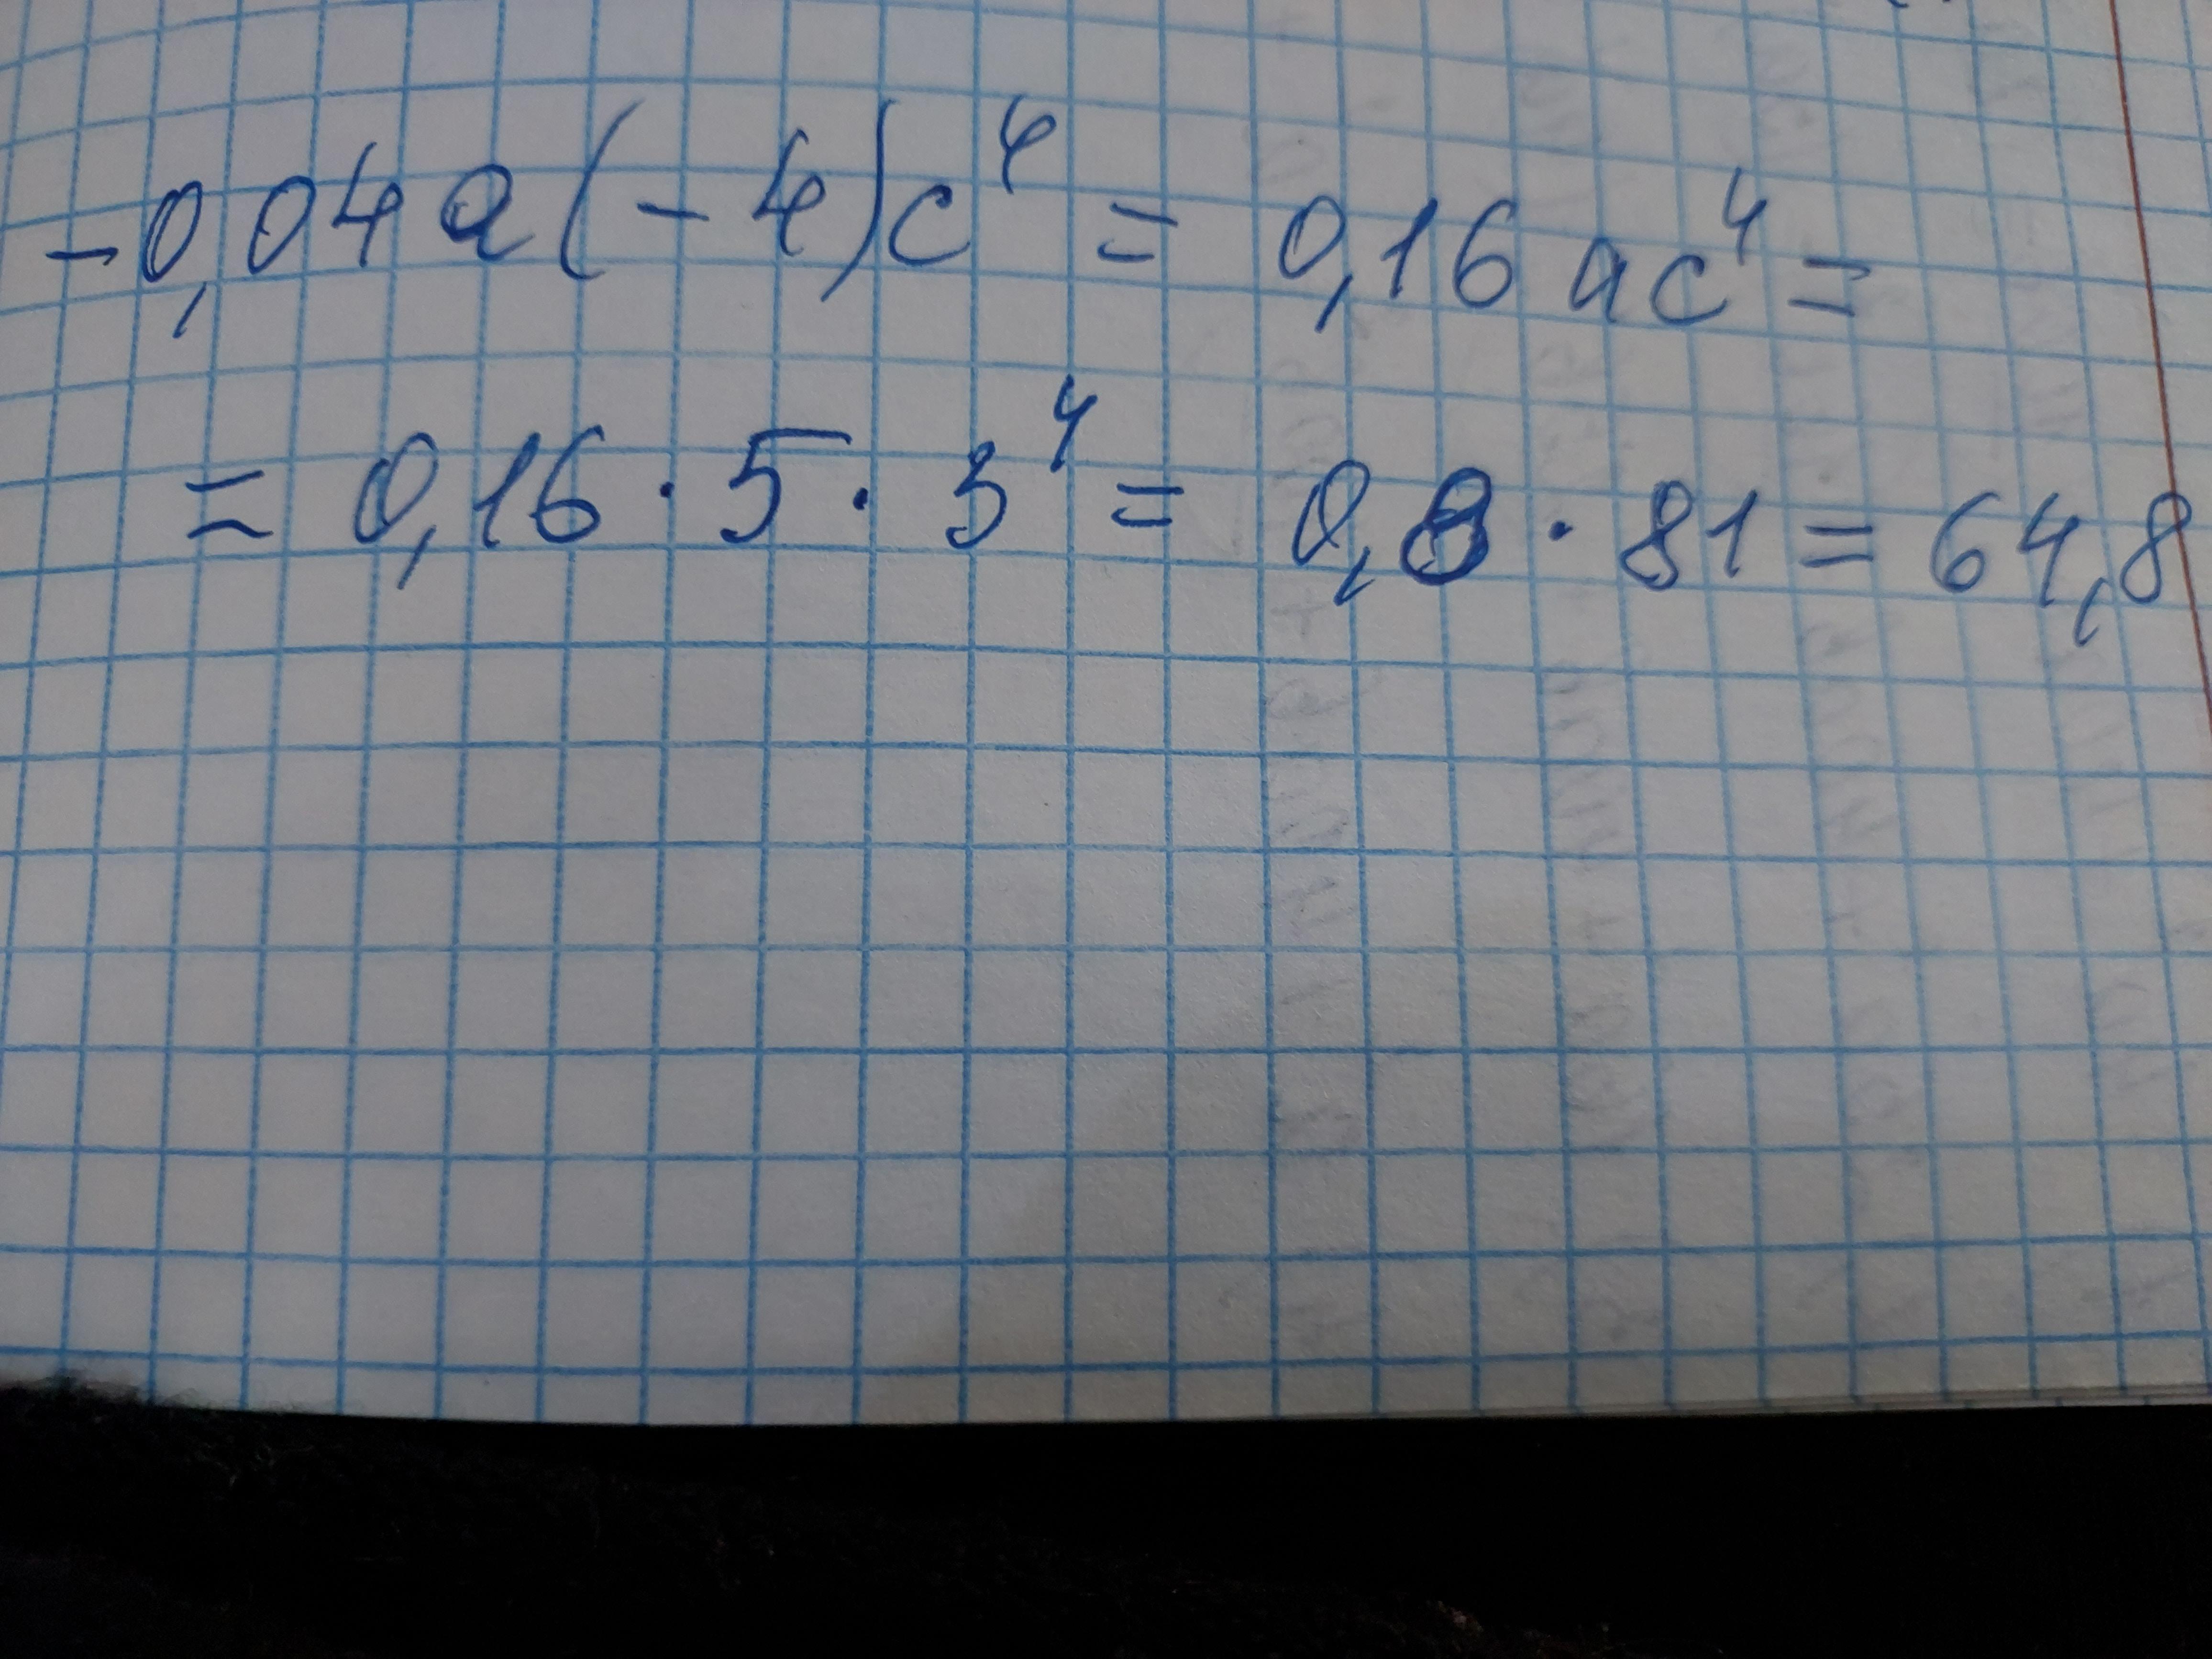 -0,04a(-4)c⁴ = 0,16ac⁴ =
= 0,16 · 5 · 3⁴ = 0,8 · 81 = 64,8